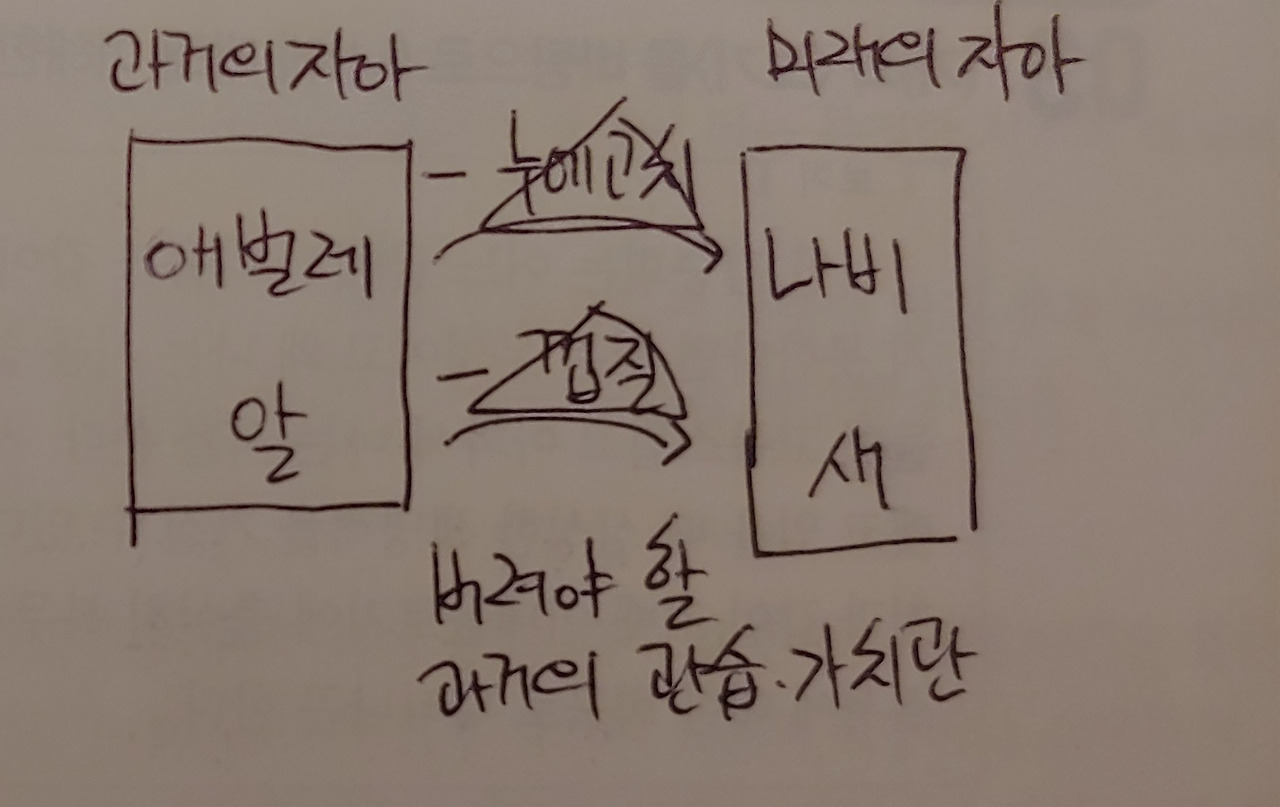 과거의 자아
미래의 자아
- 누에고치
애벌레
나비
- 껍질
알
새
버려야 할
과거의 관습·가치관